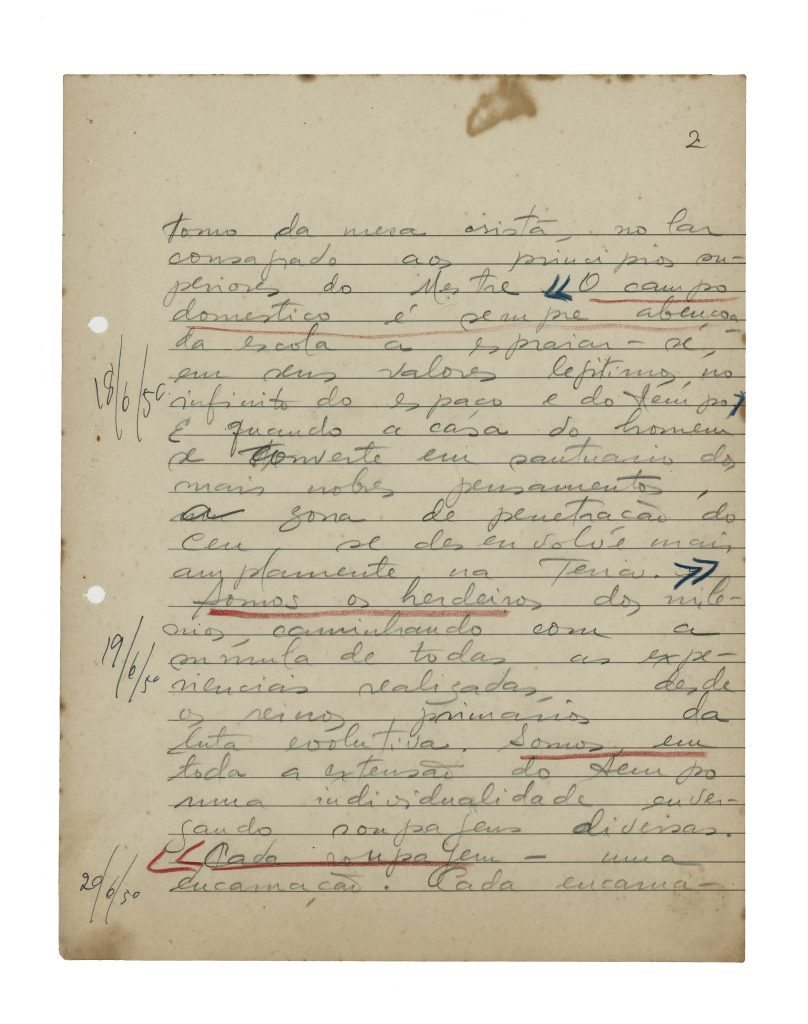 2
torno da mesa cristã, no lar
consagrado aos princípios su-
periores do Mestre « O campo
domestico é sempre abençoa-
da escola a espraiar-se,
em seus valores legitimos, no
18/6/50
infinito do espaço e do tempo,
E quando a casa do homem
se converte em santuario dos
mais nobres pensamentos,
a zona de penetração do
Ceu, se desenvolve mais
amplamente na Terra. »
Somos os herdeiros dos milê-
nios, caminhando com a
19/6/50
súmula de todas as expe-
riencias realizadas, desde
os reinos primários da
luta evolutiva. Somos, em
toda a extensão do tempo
uma individualidade enver-
gando roupagens diversas.
« Cada roupagem - uma
20/6/50
encarnação. Cada encarna-